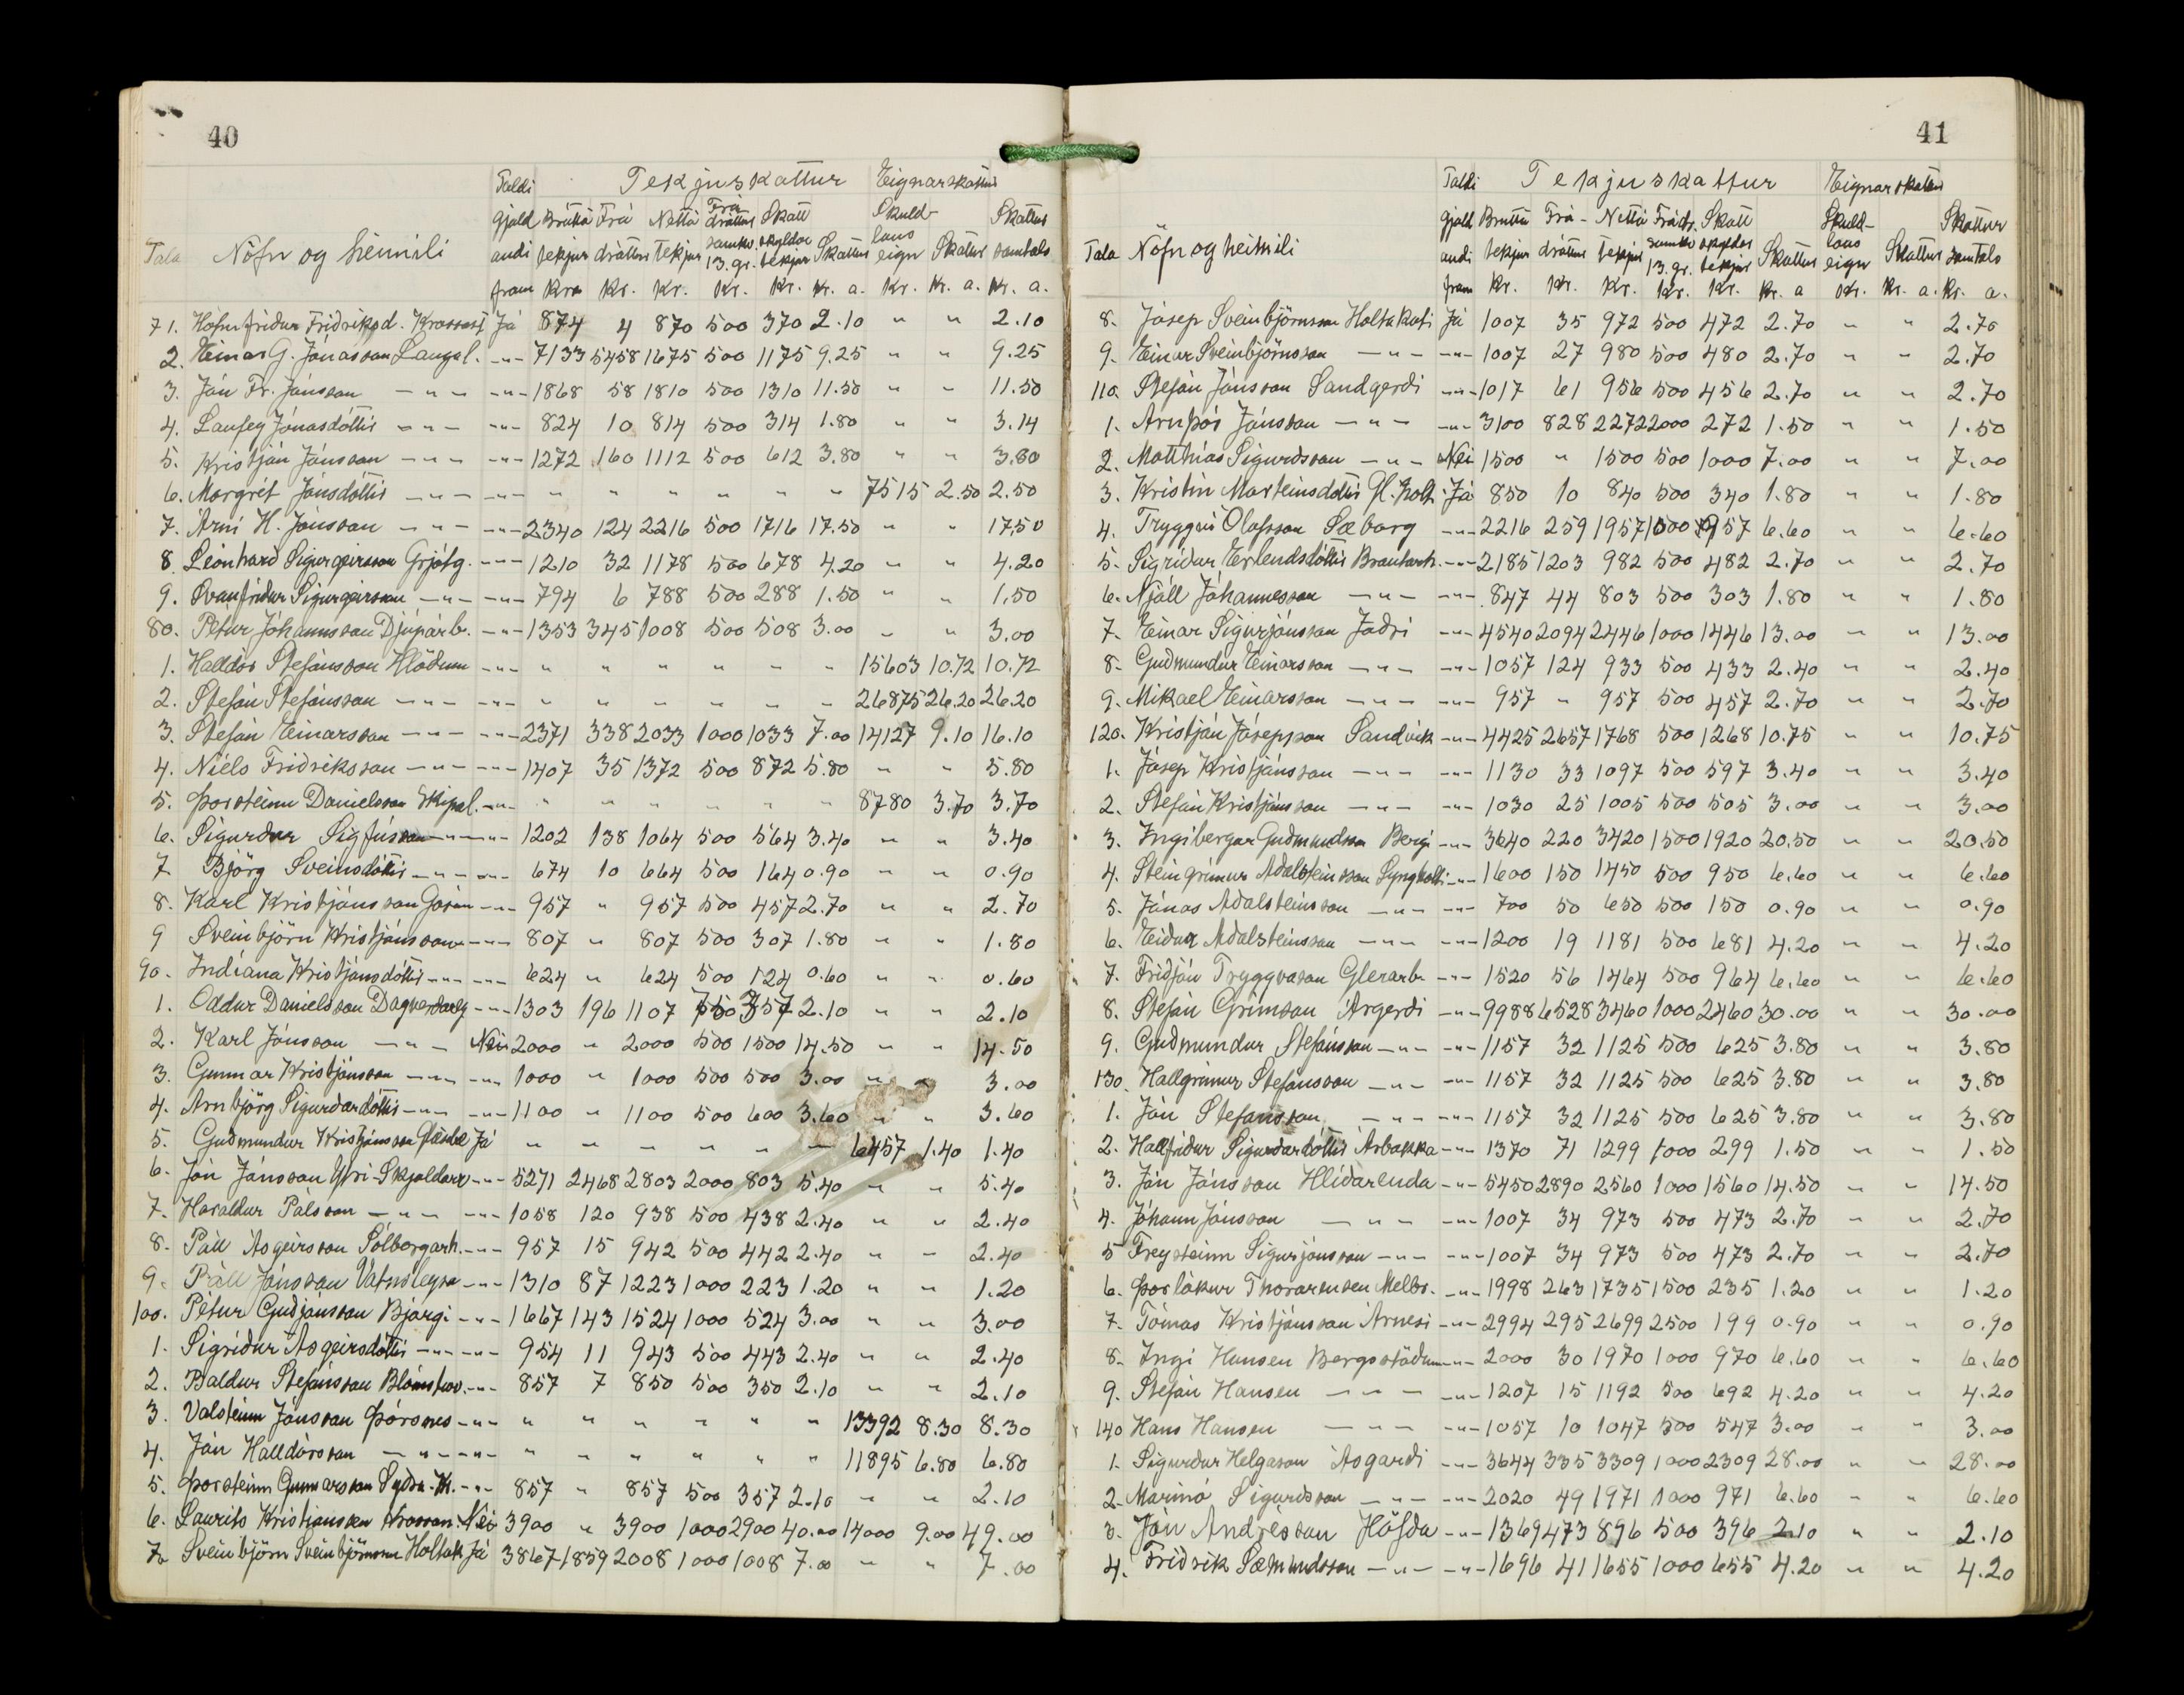 40
Taldi Tekjuskattur Eignarskattur
gjald Brúttó Frá Nettó Frádráttur Skatt Skuld- Skattur
Tala Nöfn og heimili andi tekjur dráttur tekjur samkv. 13. gr. skyldar tekjur Skattur laus eign Skattur samtals
fram Kr. Kr. Kr. Kr. Kr. Kr. a. Kr. Kr. a. Kr. a.
71. Hólmfríður Friðriksd. Krossast. Já 874 4 870 500 370 2.10 " " 2.10
2. Einar G. Jónasson Laugal. -"- 7133 5458 1675 500 1175 9.25 " " 9.25
3. Jón Fr. Jónsson -"- -"- 1868 58 1810 500 1310 11.50 " " 11.50
4. Laufey Jónasdóttir -"- -"- 824 10 814 500 314 1.80 " " 3.14
5. Kristján Jónsson -"- -"- 1272 160 1112 500 612 3.80 " " 3.80
6. Margrét Jónsdóttir -"- -"- " " " " " " 7515 2.50 2.50
7. Árni H. Jónsson -"- -"- 2340 124 2216 500 1716 17.50 " " 17.50
8. Leonhard Sigurgeirsson Grjótg. -"- 1210 32 1178 500 678 4.20 " " 4.20
9. Svanfríður Sigurgeirsson -"- -"- 794 6 788 500 288 1.50 " " 1.50
80. Pétur Jóhannsson Djúpárb. -"- 1353 345 1008 500 508 3.00 " " 3.00
1. Halldór Stefánsson Hlöðum -"- " " " " " " 15603 10.72 10.72
2. Stefán Stefánsson -"- -"- " " " " " " 26875 26.20 26.20
3. Stefán Einarsson -"- -"- 2371 338 2033 1000 1033 7.00 14127 9.10 16.10
4. Níels Friðriksson -"- -"- 1407 35 1372 500 872 5.80 " " 5.80
5. Þorsteinn Daníelsson Skipal. -"- " " " " " " 8780 3.70 3.70
6. Sigurður Sigfússon -"- -"- 1202 138 1064 500 564 3.40 " " 3.40
7 Björg Sveinsdóttir -"- -"- 674 10 664 500 164 0.90 " " 0.90
8. Karl Kristjánsson Gásum -"- 957 " 957 500 457 2.70 " " 2.70
9 Sveinbjörn Kristjánsson -"- -"- 807 " 807 500 307 1.80 " " 1.80
90. Indíana Kristjánsdóttir -"- -"- 624 " 624 500 124 0.60 " " 0.60
1. Oddur Daníelsson Dagverðareyri -"- 1303 196 1107 750 357 2.10 " " 2.10
2. Karl Jónsson -"- Nei 2000 " 2000 500 1500 14.50 " " 14.50
3. Gunnar Kristjánsson -"- -"- 1000 " 1000 500 500 3.00 " " 3.00
4. Arnbjörg Sigurðardóttir -"- -"- 1100 " 1100 500 600 3.60 " " 3.60
5. Guðmundur Kristjánsson Glæsibæ Já " " " " " - 6457 1.40 1.40
6. Jón Jónsson Ytri-Skjaldarv. -"- 5271 2468 2803 2000 803 5.40 " " 5.40
7. Haraldur Pálsson -"- -"- 1058 120 938 500 438 2.40 " " 2.40
8. Páll Ásgeirsson Sólborgarh. -"- 957 15 942 500 442 2.40 " " 2.40
9. Páll Jónsson Vatnsleysu -"- 1310 87 1223 1000 223 1.20 " " 1.20
100. Pétur Guðjónsson Bjargi -"- 1667 143 1524 1000 524 3.00 " " 3.00
1. Sigríður Ásgeirsdóttir -"- -"- 954 11 943 500 443 2.40 " " 2.40
2. Baldur Stefánsson Blómstur. -"- 857 7 850 500 350 2.10 " " 2.10
3. Valsteinn Jónsson Þórsnes -"- " " " " " " 13392 8.30 8.30
4. Jón Halldórsson -"- -"- " " " " " " 11895 6.80 6.80
5. Þorsteinn Gunnarsson Syðra-Kr. -"- 857 " 857 500 357 2.10 " " 2.10
6. Laurits Kristiansen Krossan. Nei 3900 " 3900 1000 2900 40.00 14000 9.00 49.00
7. Sveinbjörn Sveinbjörnsson Holtak. Já 3867 1859 2008 1000 1008 7.00 " " 7.00
41
Taldi Tekjuskattur Eignarskattur
gjald Bruttó Frá- Nettó Frádr. Skatt Skuld- Skattur
Tala Nöfn og heimili andi tekjur dráttur tekjur samkv 13. gr. skyldar tekjur Skattur laus eign Skattur samtals
fram Kr. Kr. Kr. Kr. Kr. Kr. a Kr. Kr. a. Kr. a.
8. Jósep Sveinbjörnsson Holtakoti Já 1007 35 972 500 472 2.70 " " 2.70
9. Einar Sveinbjörnsson -"- -"- 1007 27 980 500 480 2.70 " " 2.70
110. Stefán Jónsson Sandgerði -"- 1017 61 956 500 456 2.70 " " 2.70
1. Arnþór Jónsson -"- -"- 3100 828 2272 2000 272 1.50 " " 1.50
2. Matthías Sigurðsson -"- Nei 1500 " 1500 500 1000 7.00 " " 7.00
3. Kristín Marteinsdóttir Gl.holt. Já 850 10 840 500 340 1.80 " " 1.80
4. Tryggvi Ólafsson Sæborg -"- 2216 259 1957 1000 957 6.60 " " 6.60
5. Sigríður Erlendsdóttir Brautarh. -"- 2185 1203 982 500 482 2.70 " " 2.70
6. Njáll Jóhannesson -"- -"- 847 44 803 500 303 1.80 " " 1.80
7. Einar Sigurjónsson Jaðri -"- 4540 2094 2446 1000 1446 13.00 " " 13.00
8. Guðmundur Einarsson -"- -"- 1057 124 933 500 433 2.40 " " 2.40
9. Mikael Einarsson -"- -"- 957 " 957 500 457 2.70 " " 2.70
120. Kristján Jósepsson Sandvík -"- 4425 2657 1768 500 1268 10.75 " " 10.75
1. Jósep Kristjánsson -"- -"- 1130 33 1097 500 597 3.40 " " 3.40
2. Stefán Kristjánsson -"- -"- 1030 25 1005 500 505 3.00 " " 3.00
3. Ingibergur Guðmundsson Bergi -"- 3640 220 3420 1500 1920 20.50 " " 20.50
4. Steingrímur Aðalsteinsson Lyngholti -"- 1600 150 1450 500 950 6.60 " " 6.60
5. Jónas Aðalsteinsson -"- -"- 700 50 650 500 150 0.90 " " 0.90
6. Eiður Aðalsteinsson -"- -"- 1200 19 1181 500 681 4.20 " " 4.20
7. Friðjón Tryggvason Glerárb. -"- 1520 56 1464 500 964 6.60 " " 6.60
8. Stefán Grímsson Árgerði -"- 9988 6528 3460 1000 2460 30.00 " " 30.00
9. Guðmundur Stefánsson -"- -"- 1157 32 1125 500 625 3.80 " " 3.80
130. Hallgrímur Stefánsson -"- -"- 1157 32 1125 500 625 3.80 " " 3.80
1. Jón Stefánsson -"- -"- 1157 32 1125 500 625 3.80 " " 3.80
2. Hallfríður Sigurðardóttir Árbakka -"- 1370 71 1299 1000 299 1.50 " " 1.50
3. Jón Jónsson Hlíðarenda -"- 5450 2890 2560 1000 1560 14.50 " " 14.50
4. Jóhann Jónsson -"- -"- 1007 34 973 500 473 2.70 " " 2.70
5 Freysteinn Sigurjónsson -"- -"- 1007 34 973 500 473 2.70 " " 2.70
6. Þorlákur Thorarensen Melbr. -"- 1998 263 1735 1500 235 1.20 " " 1.20
7. Tómas Kristjánsson Árnesi -"- 2994 295 2699 2500 199 0.90 " " 0.90
8. Ingi Hansen Bergsstöðum -"- 2000 30 1970 1000 970 6.60 " " 6.60
9. Stefán Hansen -"- -"- 1207 15 1192 500 692 4.20 " " 4.20
140 Hans Hansen -"- -"- 1057 10 1047 500 547 3.00 " " 3.00
1. Sigurður Helgason Ásgarði -"- 3644 335 3309 1000 2309 28.00 " " 28.00
2. Marinó Sigurðsson -"- -"- 2020 49 1971 1000 971 6.60 " " 6.60
3. Jón Andrésson Höfða -"- 1369 473 896 500 396 2.10 " " 2.10
4. Friðrik Sæmundsson -"- -"- 1696 41 1655 1000 655 4.20 " " 4.20